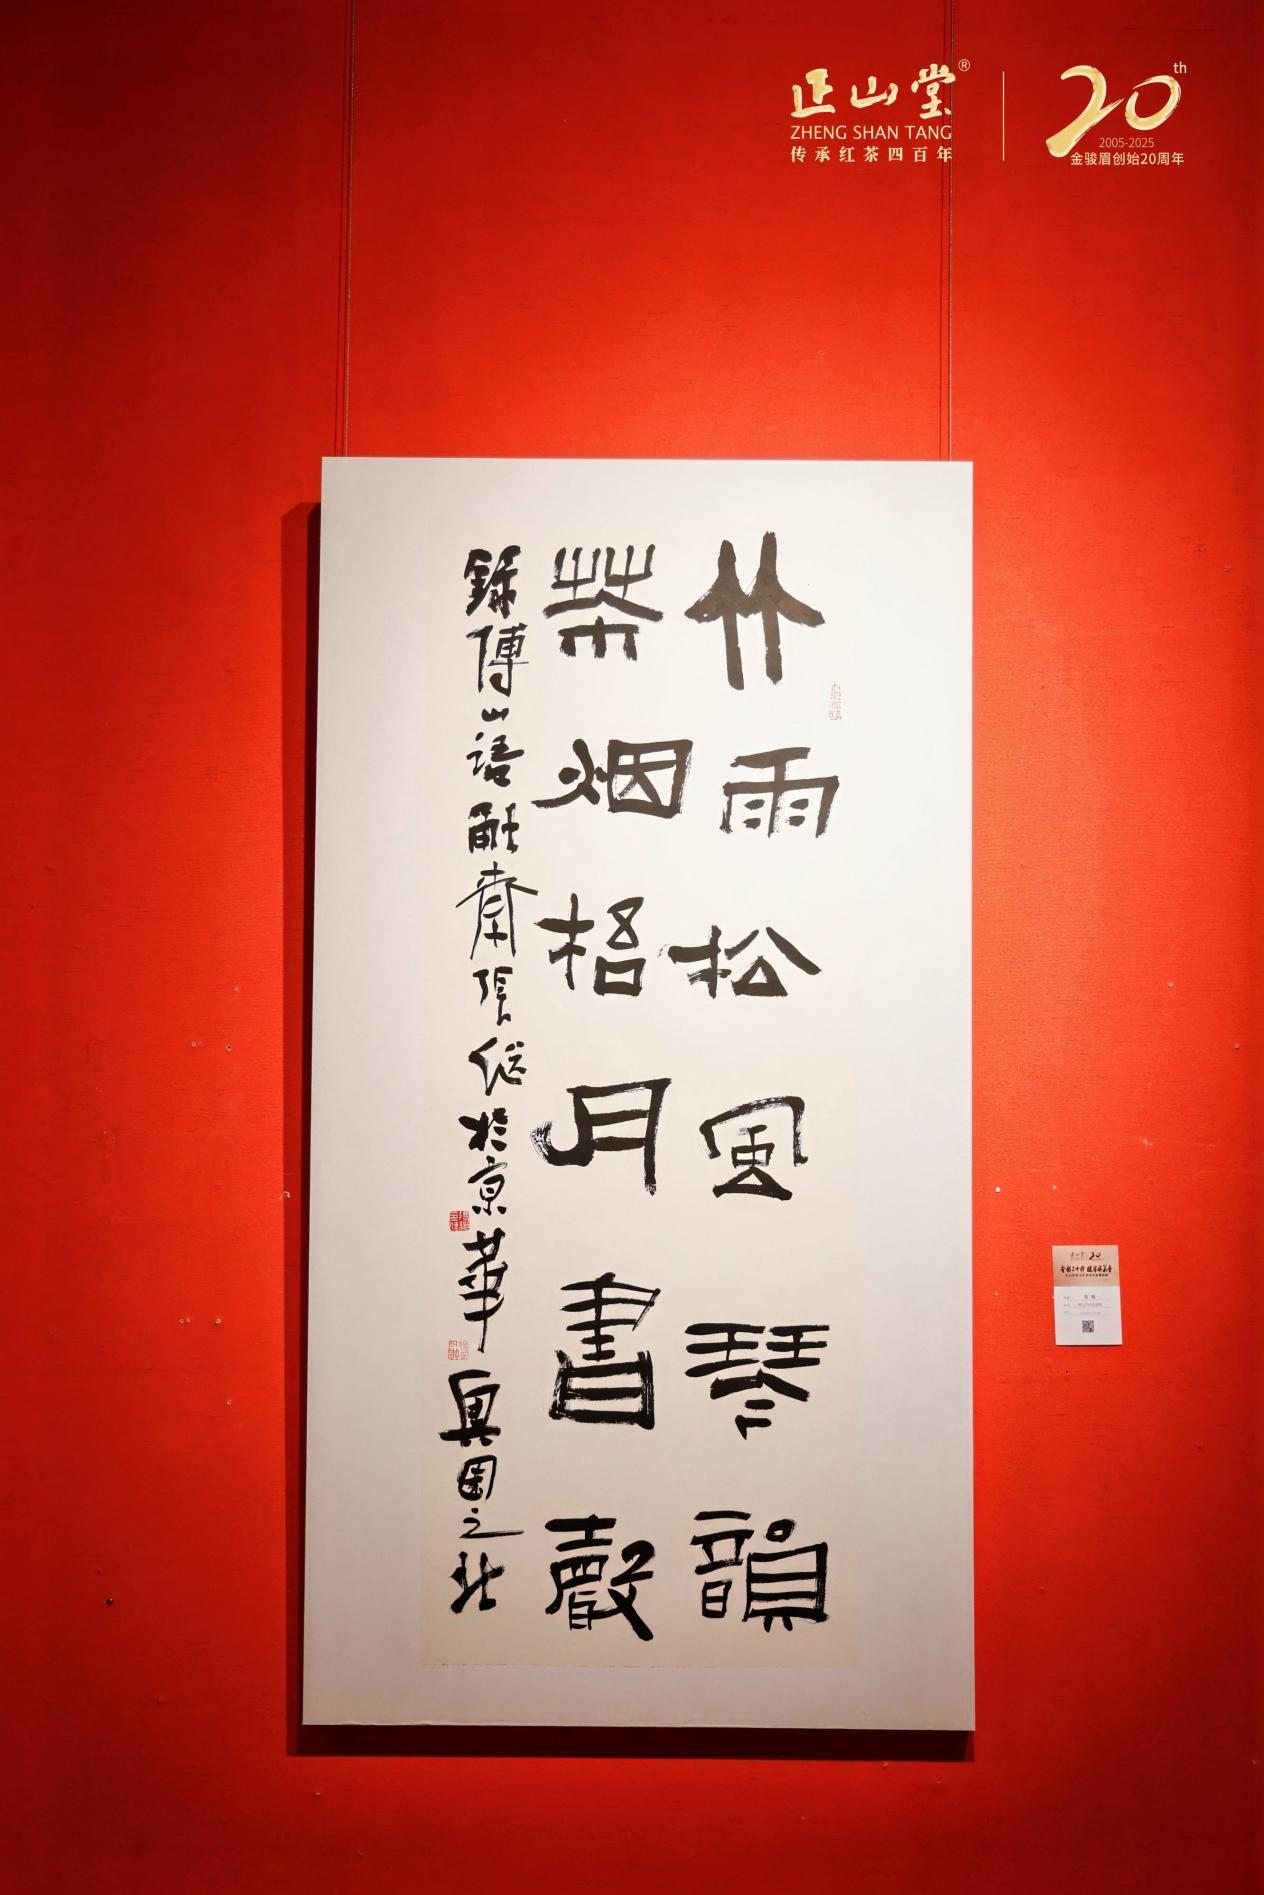 正山堂®
ZHENG SHAN TANG
传承红茶四百年
20th
2005-2025
金骏眉创始20周年
竹雨松風琴韻
茶烟梧月書聲
錄傅山語融齋張継於京華奥园之北